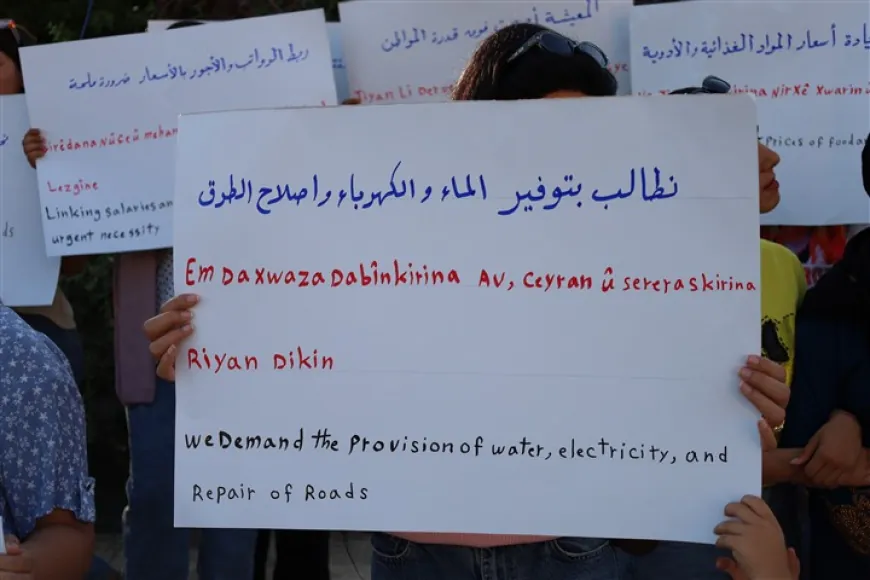 ربط الرواتب والأجور بالأسعار ضرورة ملحة
Lezgîne
Linking salaries an
urgent necessity
ds
المعيشة
فوق قدرة المواطن
Jiyan Li
يادة أسعار المواد الغذائية والأدوية
irina Nirxê xwarin û
Prices of food a
نطالب بتوفير الماء و الكهرباء واصلاح الطرق
Em Daxwaza Dabînkirina Av, Ceyran û sereraskirina
Riyan Dikin
we Demand the Provision of water, electricity, and
Repair of Roads